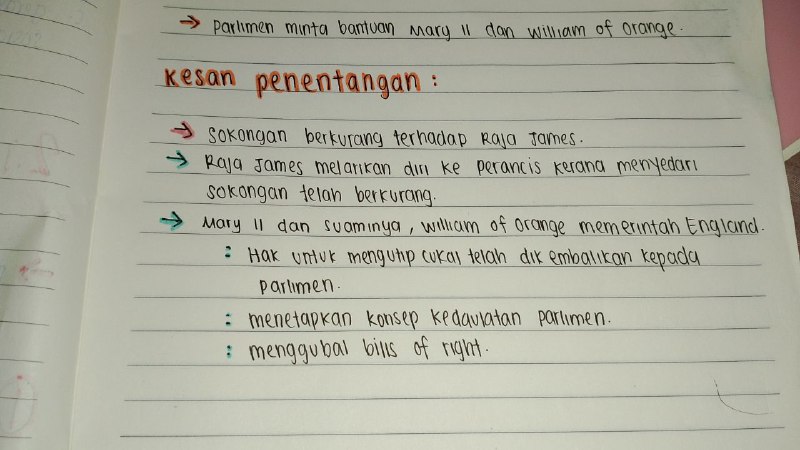 → Parlimen minta bantuan Mary II dan William of Orange.
Kesan penentangan :
→ Sokongan berkurang terhadap Raja James.
→ Raja James melarikan diri ke Perancis kerana menyedari
sokongan telah berkurang.
→ Mary II dan suaminya, William of Orange memerintah England.
: Hak untuk mengutip cukai telah dikembalikan kepada
Parlimen.
: menetapkan konsep kedaulatan Parlimen.
: menggubal bills of right.